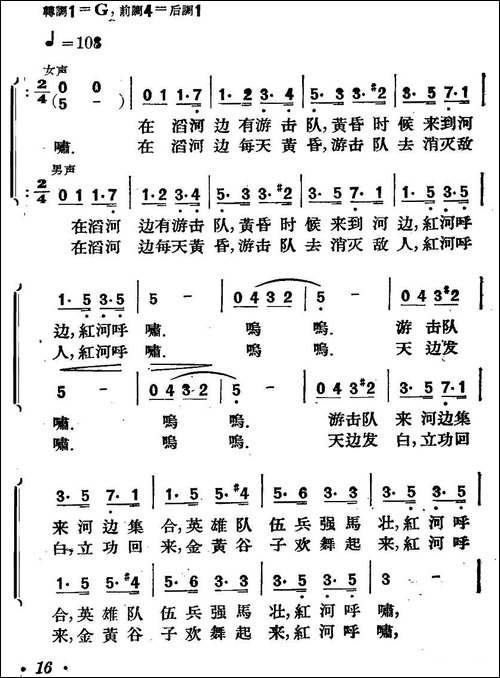 轉調1=G,前調4=后調1
♩=108
女声
2/4 0 0 | 0 1 1·7 | 1·2 3·4 | 5·3 3·#2 | 3·5 7·1
(5 -)
在滔河边有游击队,黄昏时候来到河
嘯.在滔河边每天黄昏,游击队去消灭敌
男声
2/4 0 1 1·7 | 1·2 3·4 | 5·3 3·#2 | 3·5 7·1 | 1·5 3·5
在滔河边有游击队,黄昏时候来到河边,紅河呼
在滔河边每天黄昏,游击队去消灭敌人,紅河呼
1·5 3·5 | 5 - | 0 4 3 2 | 5 - | 0 4 3#2
边,紅河呼嘯.嗚嗚.游击队
人,紅河呼嘯.嗚嗚.天边发
5 - | 0 4 3·2 | 5 - | 0 4 3#2 | 3·5 7·1
嘯.嗚嗚.游击队来河边集
嘯.嗚嗚.天边发白,立功回
3·5 7·1 | 1·5 5·#4 | 5·6 3·3 | 3·2 1·2 | 3·5 3·5
来河边集合,英雄队伍兵强馬壮,紅河呼
白,立功回来,金黄谷子欢舞起来,紅河呼
1·5 5·#4 | 5·6 3·3 | 3·2 1·2 | 3·5 3·5 | 3 -
合,英雄队伍兵强馬壮,紅河呼嘯,
来,金黄谷子欢舞起来,紅河呼嘯,
·16·